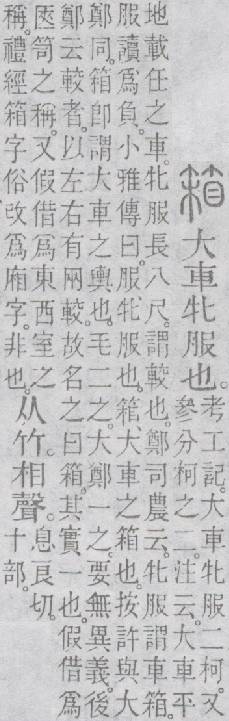 箱 大車牝服也。
考工記。大車牝服二柯。又
參分柯之二。注云。大車平
地載任之車。牝服長八尺。謂較也。鄭司農云。牝服謂車箱。
服讀爲負。小雅傳曰。服、牝服也。箱、大車之箱也。按許與大
鄭同。箱卽謂大車之輿也。毛二之。大鄭一之。要無異義。後
鄭云較者。以左右有兩較。故名之曰箱。其實一也。假借爲
匧笥之稱。又假借爲東西室之
稱。禮經箱字俗改爲廂字。非也。
从竹。相聲。
息良切。
十部。